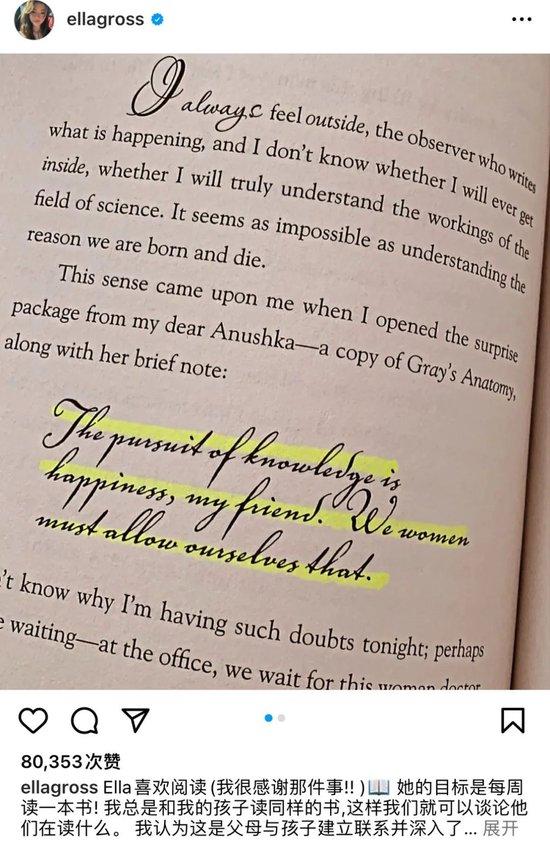 ellagross
I always feel outside, the observer who writes
what is happening, and I don't know whether I will ever get
inside, whether I will truly understand the workings of the
field of science. It seems as impossible as understanding the
reason we are born and die.
This sense came upon me when I opened the surprise
package from my dear Anushka—a copy of Gray's Anatomy,
along with her brief note:
The pursuit of knowledge is
happiness, my friend. We women
must allow ourselves that.
't know why I'm having such doubts tonight; perhaps
e waiting—at the office, we wait for this woman doctor
80,353次赞
ellagross Ella喜欢阅读(我很感谢那件事!! )📖 她的目标是每周
读一本书! 我总是和我的孩子读同样的书,这样我们就可以谈论他
们在读什么。 我认为这是父母与孩子建立联系并深入了... 展开